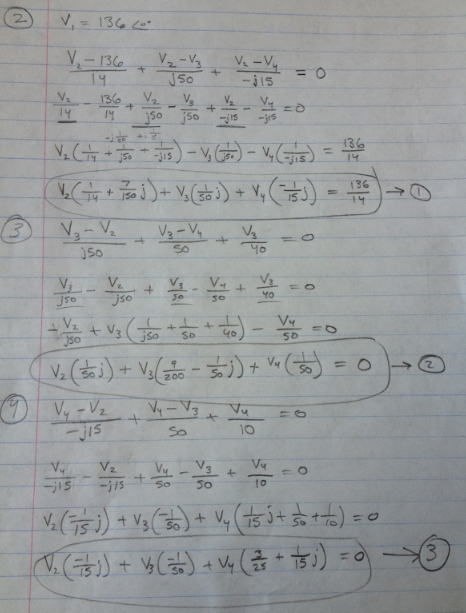 ② V₁ = 136 ∠0°
(V₂ - 136)/14 + (V₂ - V₃)/j50 + (V₂ - V₄)/-j15 = 0
V₂/14 - 136/14 + V₂/j50 - V₃/j50 + V₂/-j15 - V₄/-j15 = 0
V₂(1/14 + 1/j50 + 1/-j15) - V₃(1/j50) - V₄(1/-j15) = 136/14
V₂(1/14 + 7/150 j) + V₃(1/50 j) + V₄(-1/15 j) = 136/14 → ①
③ (V₃ - V₂)/j50 + (V₃ - V₄)/50 + V₃/40 = 0
V₃/j50 - V₂/j50 + V₃/50 - V₄/50 + V₃/40 = 0
+V₂/j50 + V₃(1/j50 + 1/50 + 1/40) - V₄/50 = 0
V₂(1/50 j) + V₃(9/200 - 1/50 j) + V₄(1/50) = 0 → ②
④ (V₄ - V₂)/-j15 + (V₄ - V₃)/50 + V₄/10 = 0
V₄/-j15 - V₂/-j15 + V₄/50 - V₃/50 + V₄/10 = 0
V₂(-1/15 j) + V₃(-1/50) + V₄(1/15 j + 1/50 + 1/10) = 0
V₂(-1/15 j) + V₃(-1/50) + V₄(3/25 + 1/15 j) = 0 → ③